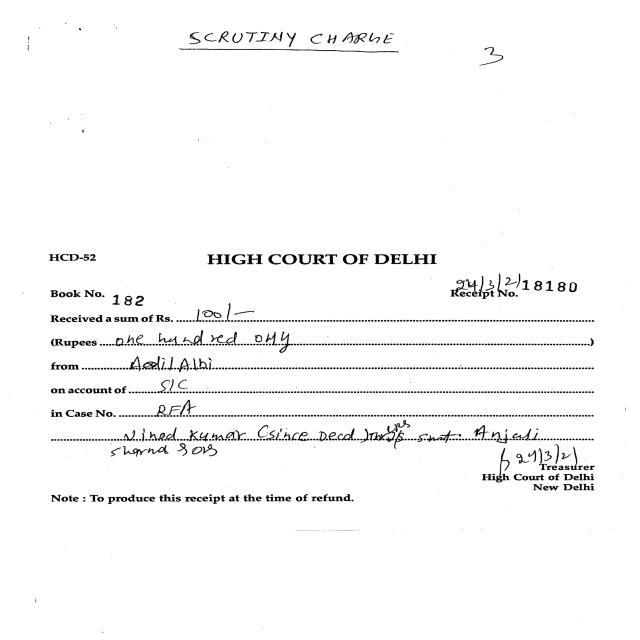 SCRUTINY CHARGE
3
HCD-52 HIGH COURT OF DELHI
24/3/21
Book No. 182 Receipt No. 18180
Received a sum of Rs. 100/-
(Rupees one hundred only)
from Aadil Albi
on account of S/C
in Case No. RFA
Vinod Kumar (since Decd) Smt. Anjali
Sharma & ors
24/3/21
Treasurer
High Court of Delhi
New Delhi
Note : To produce this receipt at the time of refund.